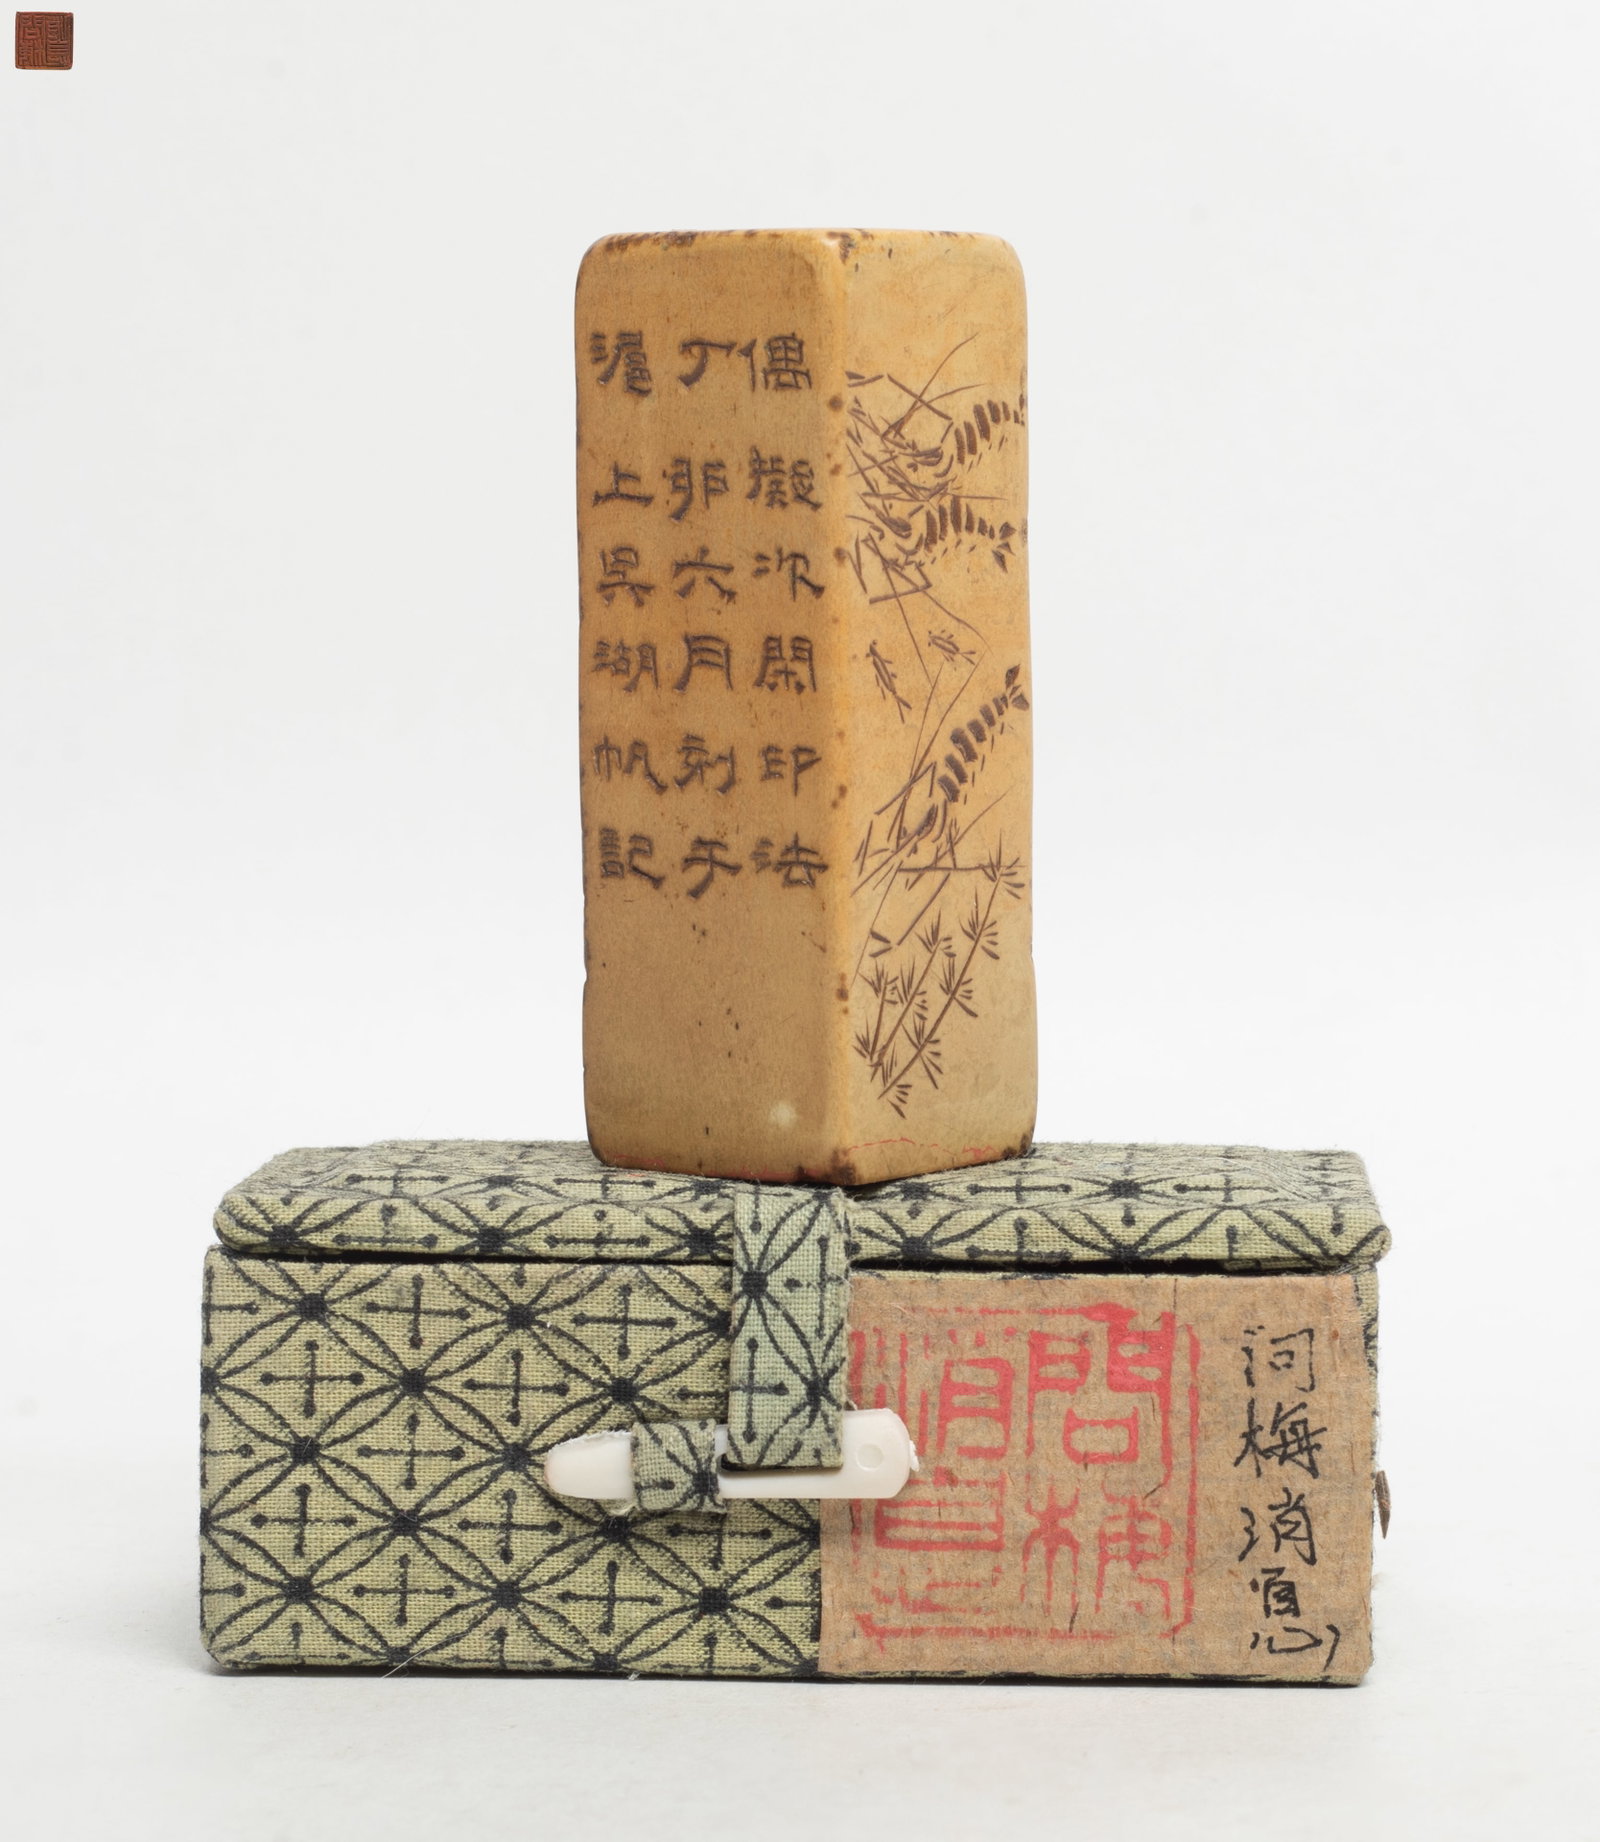 偶擬次閑印法
丁卯六月刻于
滬上吳湖帆記
问梅消息
問梅
消息